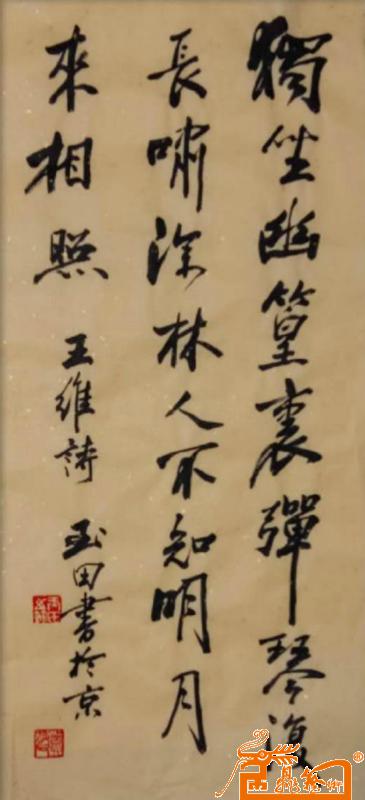 獨坐幽篁裏彈琴復
長嘯深林人不知明月
來相照
王維詩 玉田書於京